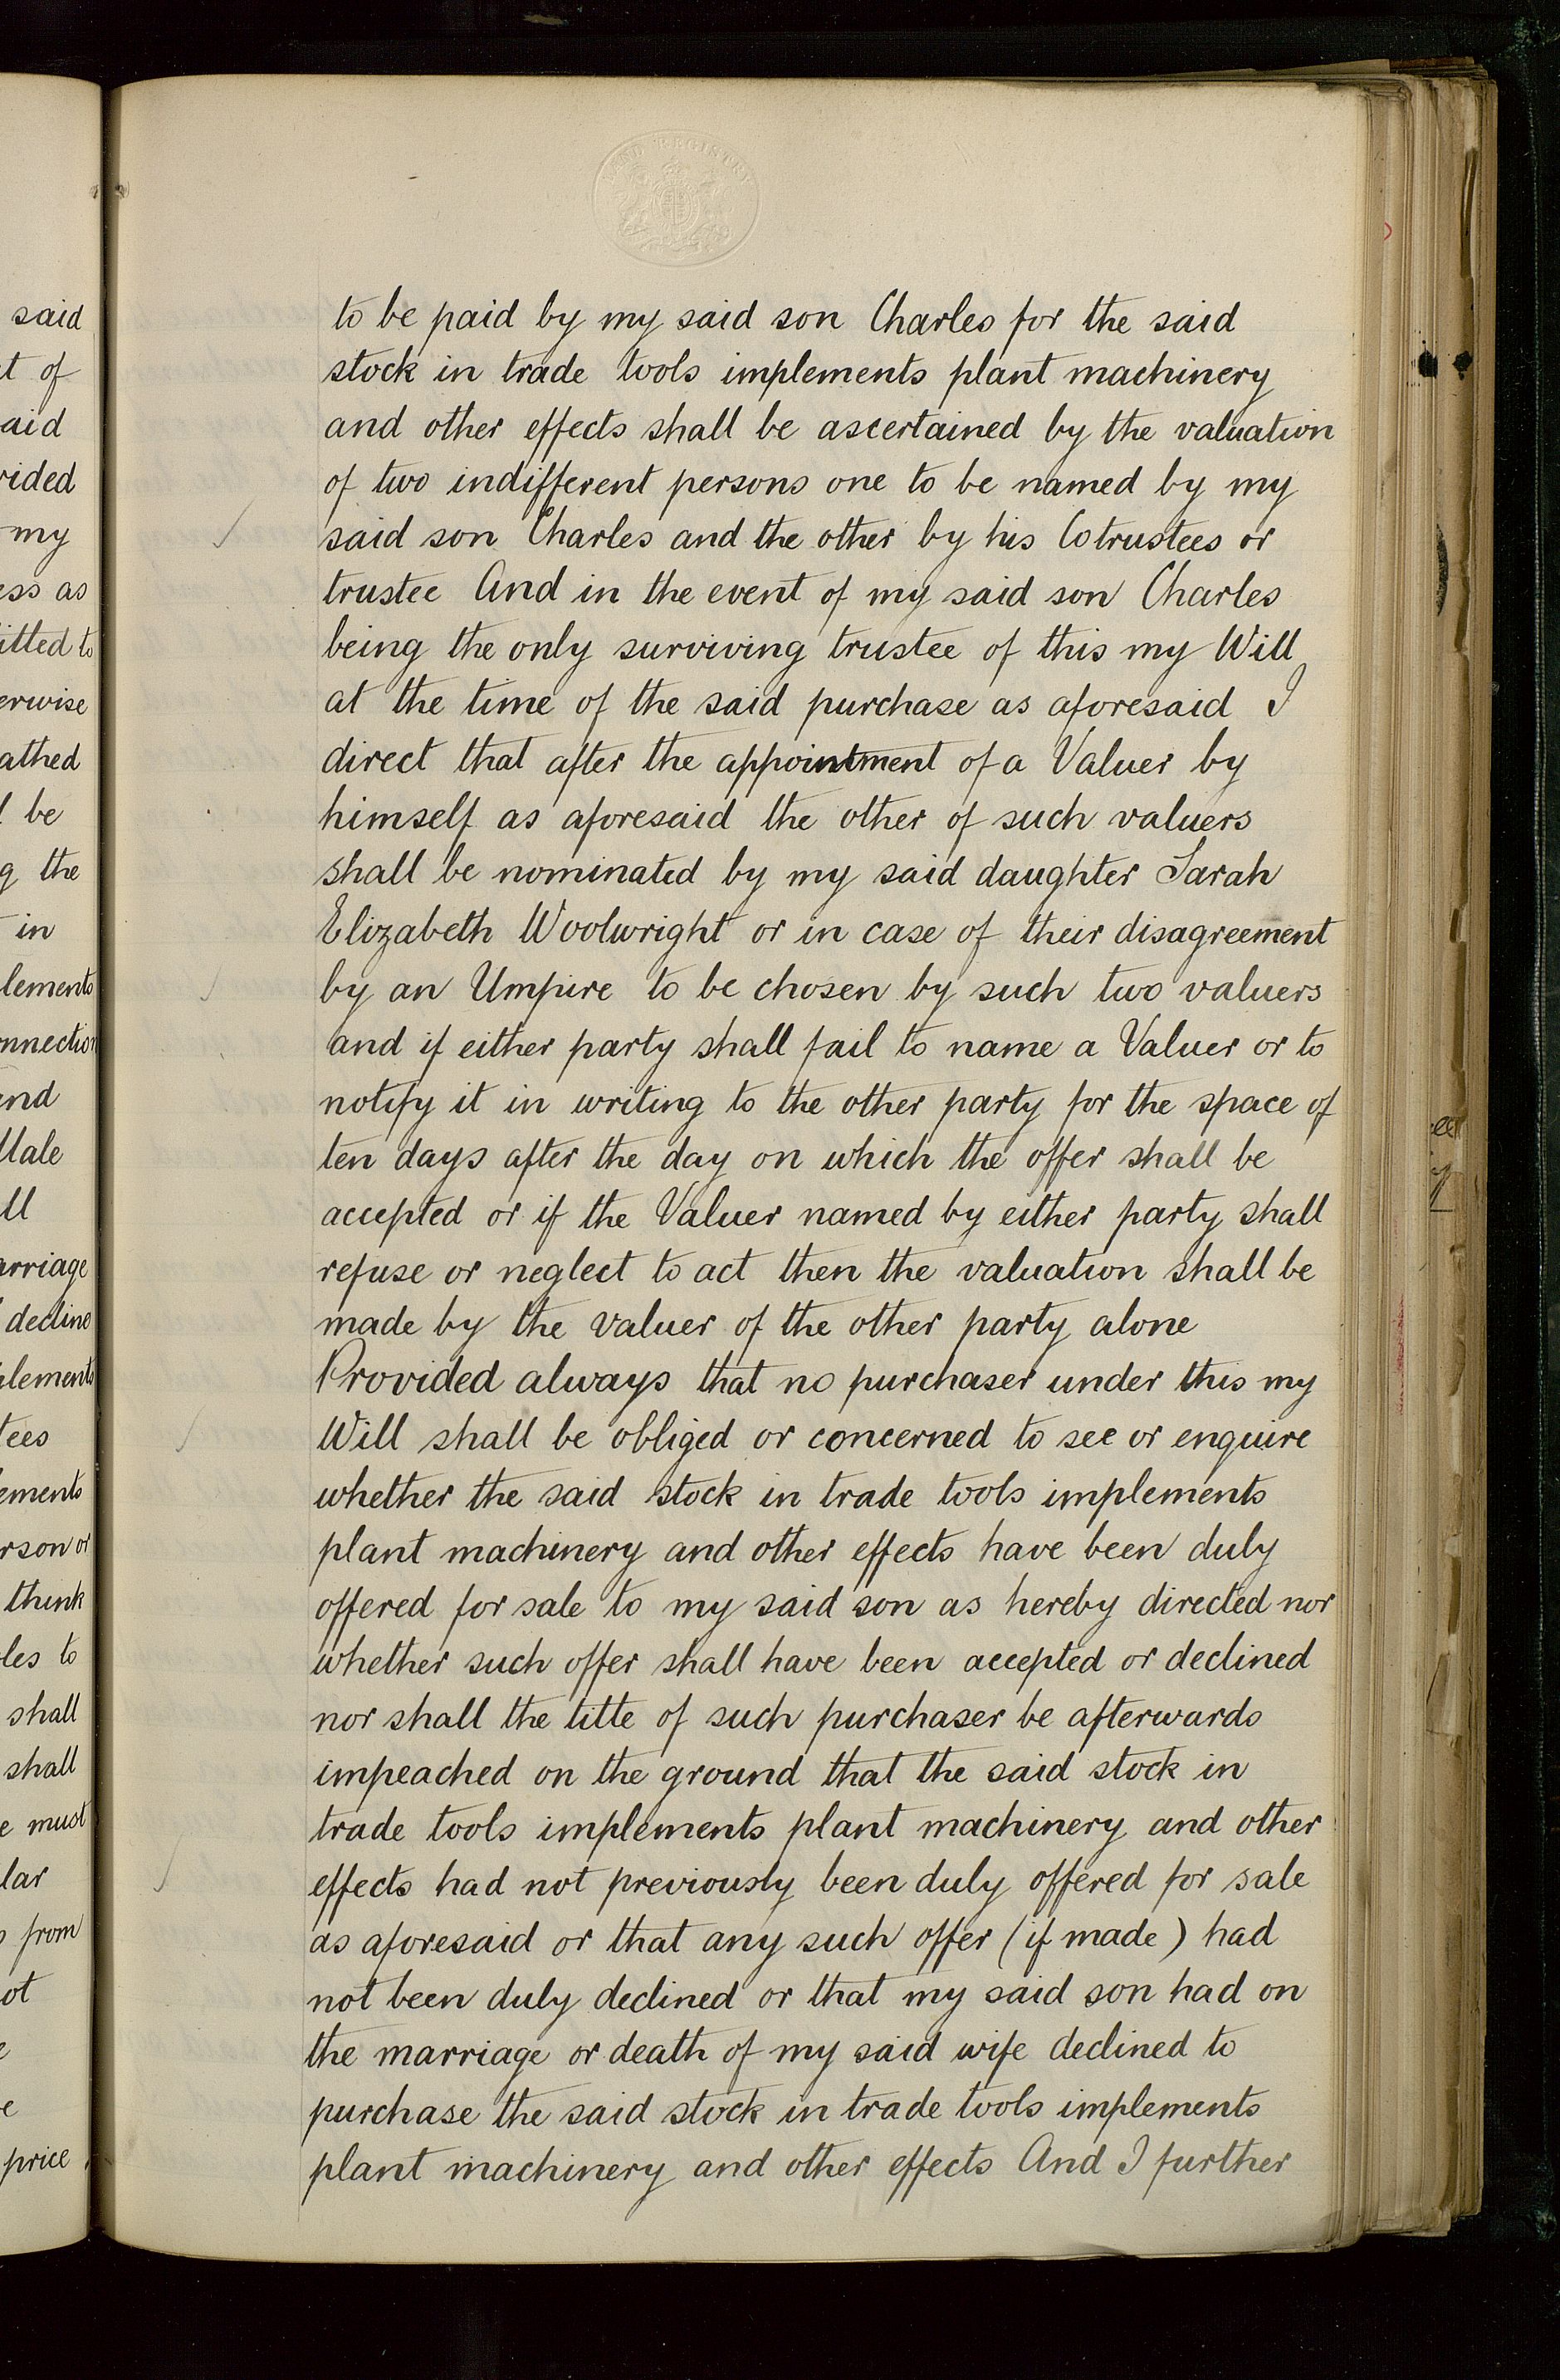 said
of
aid
vided
my
ess as
itted to
erwise
athed
be
the
in
lements
nnection
and
ll
arriage
decline
plements
tees
ements
rson or
think
les to
shall
shall
must
lar
from
ot
price
LAND REGISTRY
to be paid by my said son Charles for the said
stock in trade tools implements plant machinery
and other effects shall be ascertained by the valuation
of two indifferent persons one to be named by my
said son Charles and the other by his Cotrustees or
trustee And in the event of my said son Charles
being the only surviving trustee of this my Will
at the time of the said purchase as aforesaid I
direct that after the appointment of a Valuer by
himself as aforesaid the other of such valuers
shall be nominated by my said daughter Sarah
Elizabeth Woolwright or in case of their disagreement
by an Umpire to be chosen by such two valuers
and if either party shall fail to name a Valuer or to
notify it in writing to the other party for the space of
ten days after the day on which the offer shall be
accepted or if the Valuer named by either party shall
refuse or neglect to act then the valuation shall be
made by the valuer of the other party alone
Provided always that no purchaser under this my
Will shall be obliged or concerned to see or enquire
whether the said stock in trade tools implements
plant machinery and other effects have been duly
offered for sale to my said son as hereby directed nor
whether such offer shall have been accepted or declined
nor shall the title of such purchaser be afterwards
impeached on the ground that the said stock in
trade tools implements plant machinery and other
effects had not previously been duly offered for sale
as aforesaid or that any such offer (if made) had
not been duly declined or that my said son had on
the marriage or death of my said wife declined to
purchase the said stock in trade tools implements
plant machinery and other effects And I further